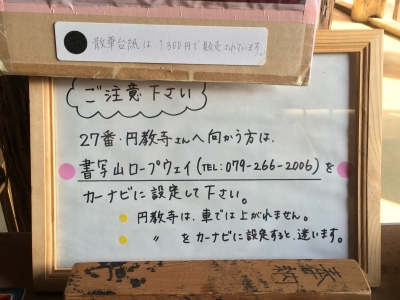 散華台紙は1300円で販売されています。
ご注意下さい
27番・円教寺さんへ向かう方は、
書写山ロープウェイ(TEL:079-266-2006)を
カーナビに設定して下さい。
円教寺は、車では上がれません。
〃 をカーナビに設定すると、迷います。